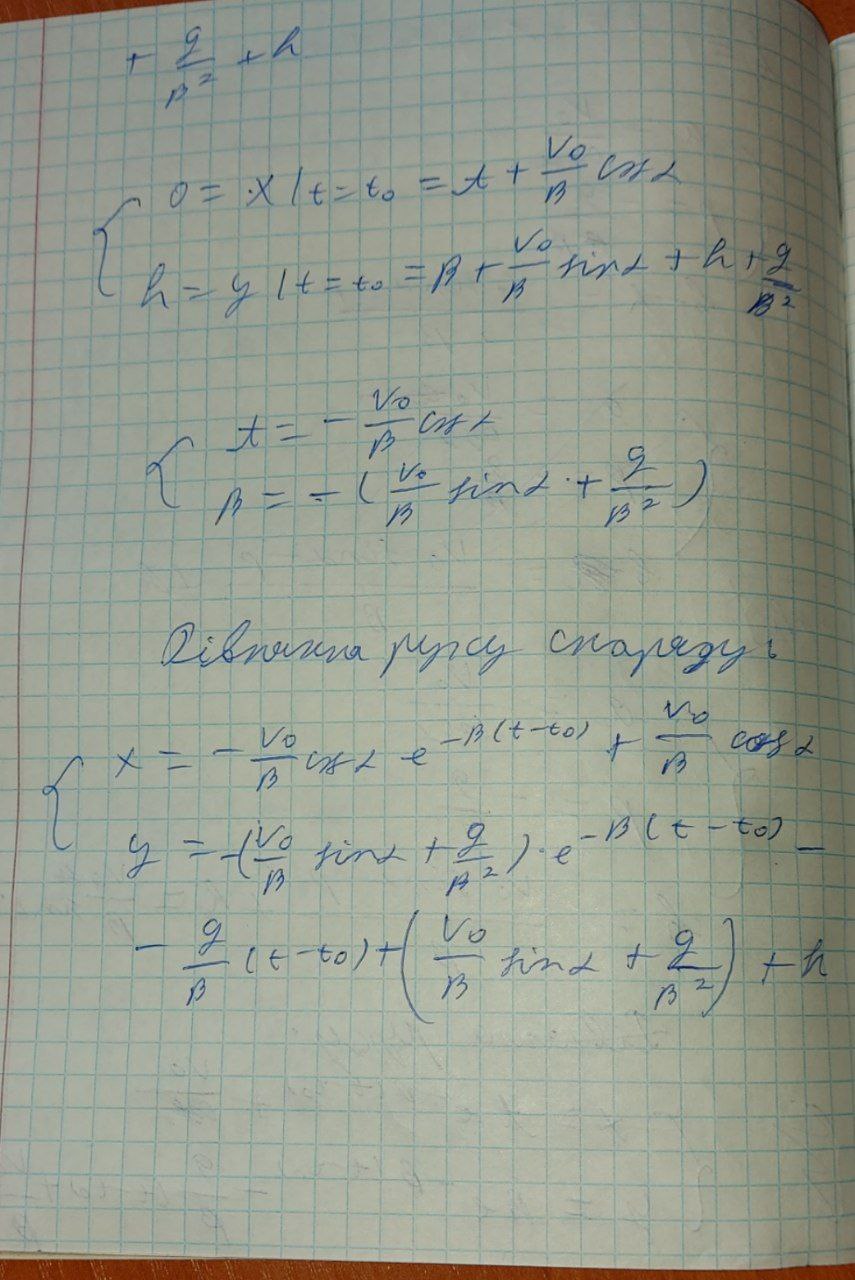 + g/β² + h
0 = x | t = t₀ = A + V₀/β cos α
h = y | t = t₀ = B + V₀/β sin α + h + g/β²
A = - V₀/β cos α
B = - ( V₀/β sin α + g/β² )
Рівняння руху снаряду:
x = - V₀/β cos α e^(-β(t-t₀)) + V₀/β cos α
y = -( V₀/β sin α + g/β² ) · e^(-β(t-t₀)) -
- g/β (t-t₀) + ( V₀/β sin α + g/β² ) + h